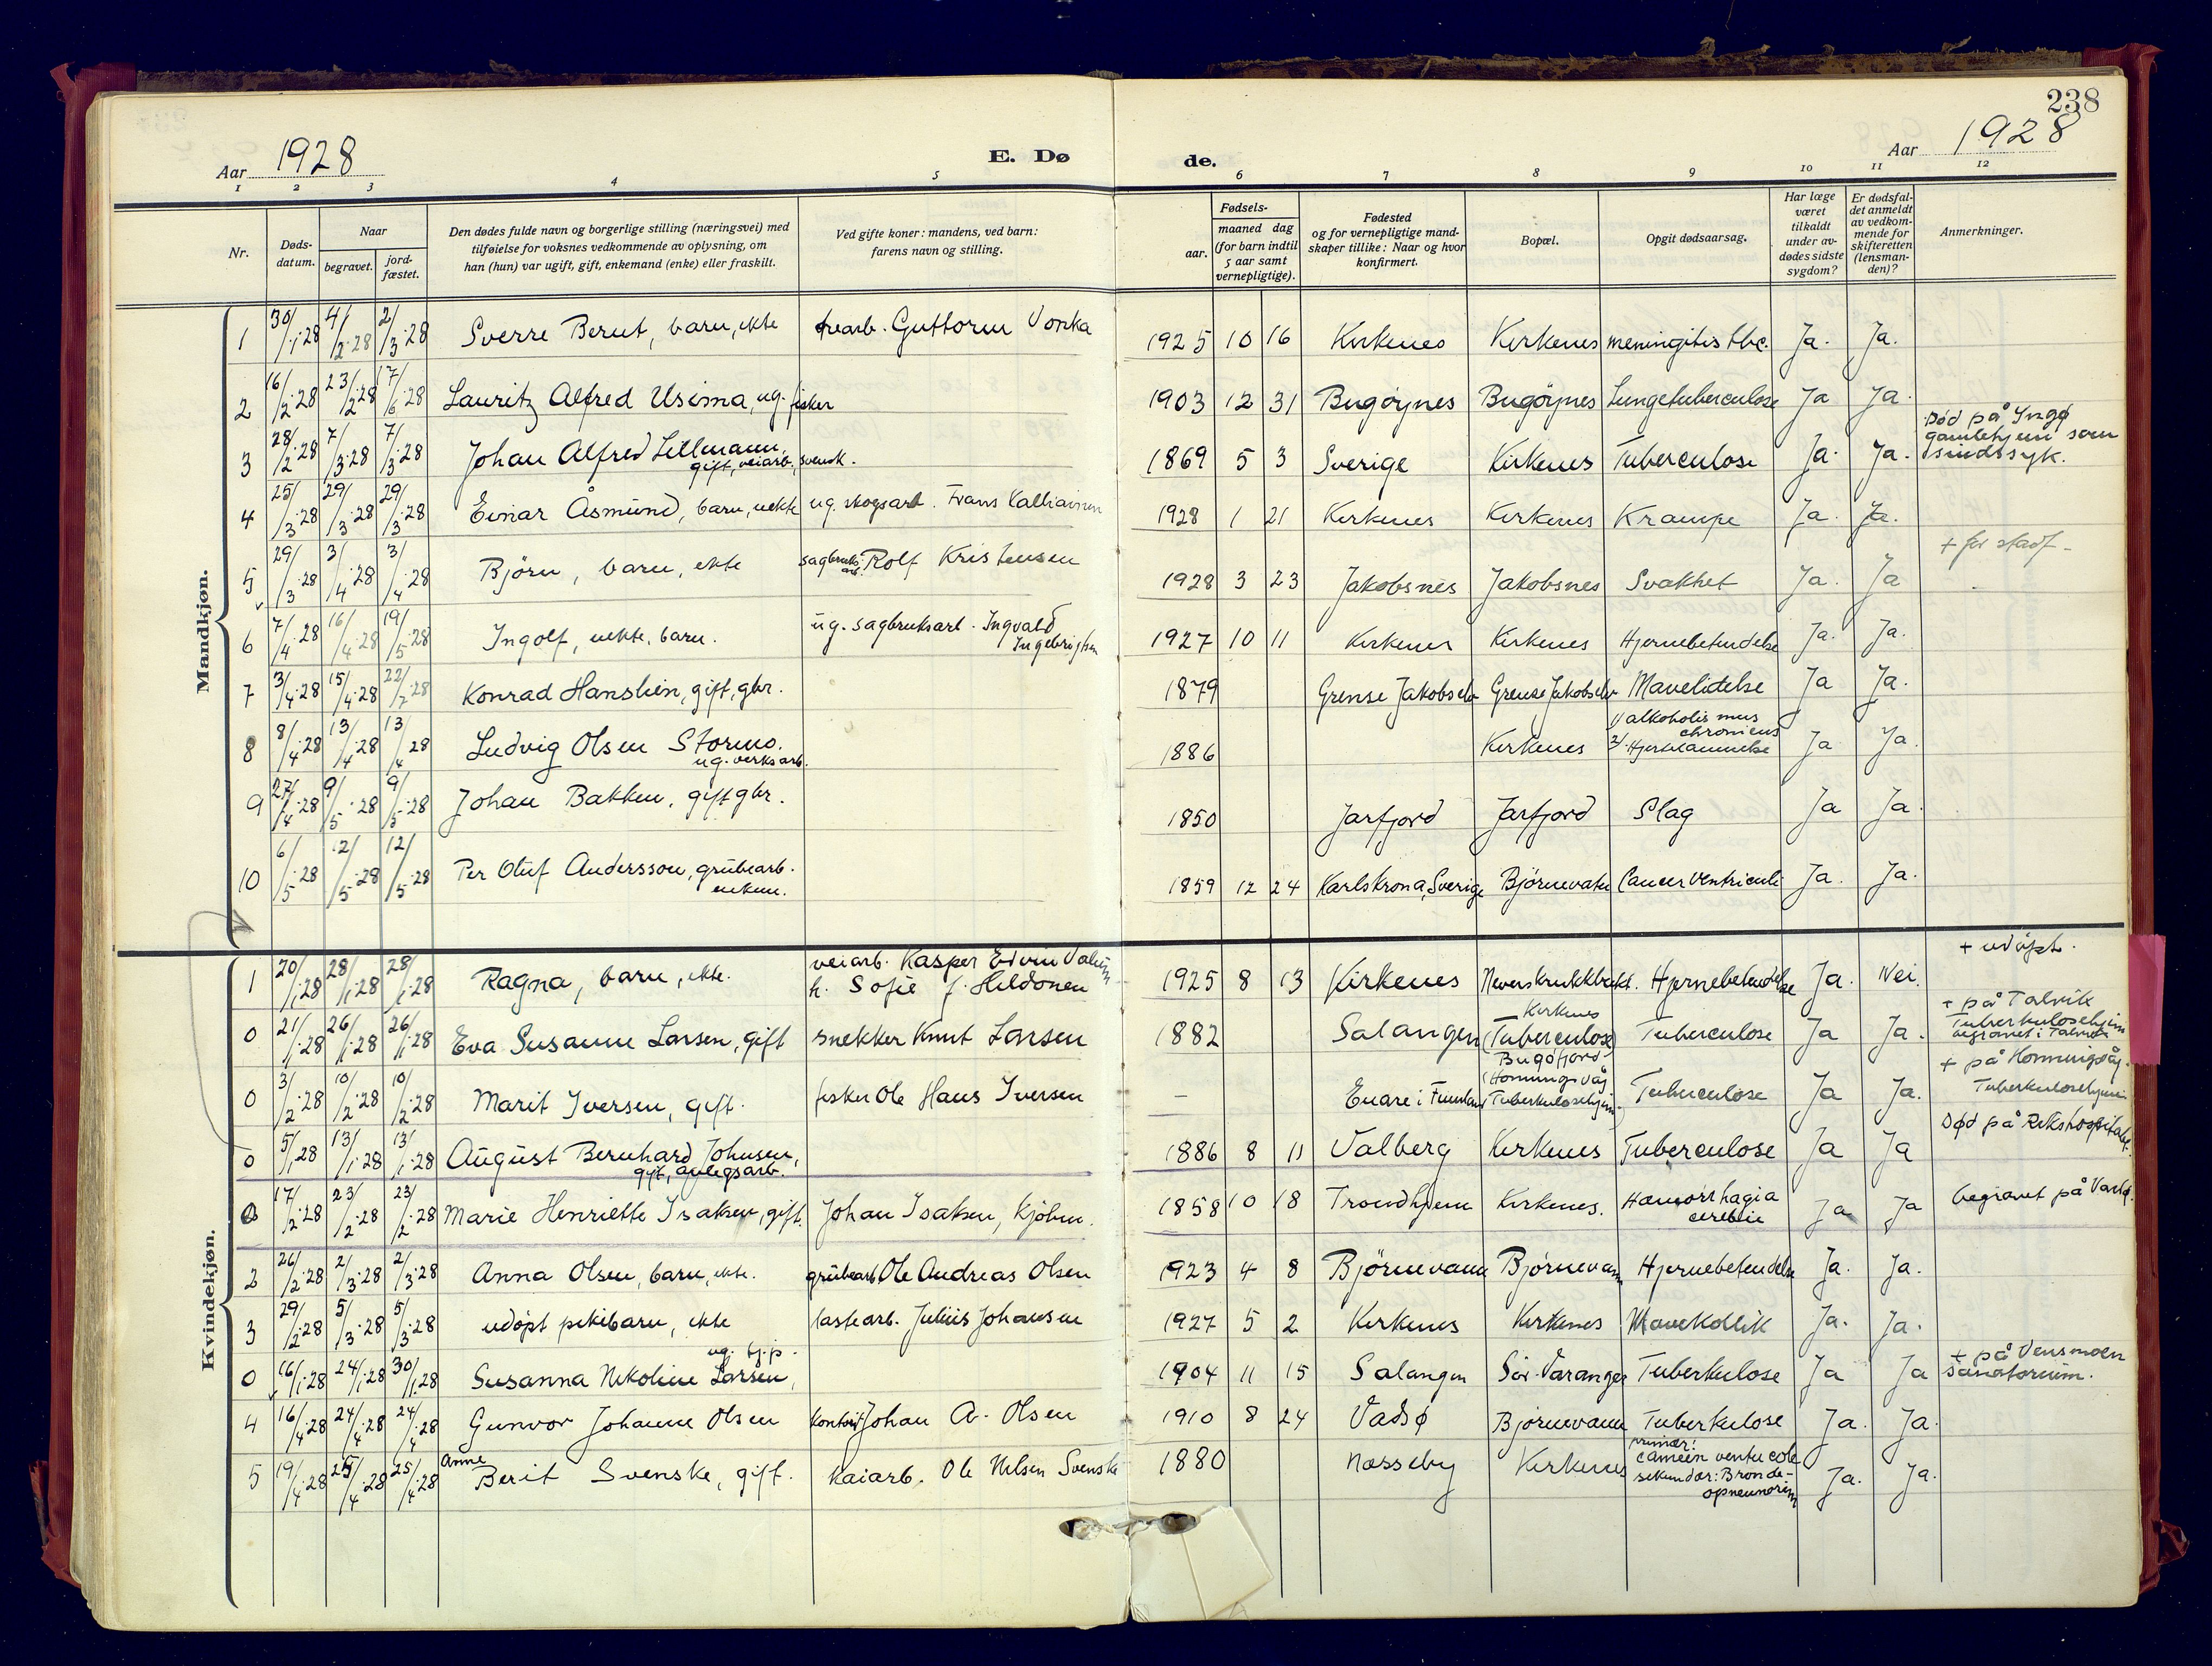 238
Aar 1928
E. Dø
de.
Aar 1928
1 2 3 4 5 6 7 8 9 10 11 12
Nr.
Døds-
datum.
Naar
begravet.
jord-
fæstet.
Den dødes fulde navn og borgerlige stilling (næringsvei) med
tilføielse for voksnes vedkommende av oplysning, om
han (hun) var ugift, gift, enkemand (enke) eller fraskilt.
Ved gifte koner: mandens, ved barn:
farens navn og stilling.
Fødsels-
aar.
maaned dag
(for barn indtil
5 aar samt
vernepligtige).
Fødested
og for vernepligtige mand-
skaper tillike: Naar og hvor
konfirmert.
Bopæl.
Opgit dødsaarsag.
Har læge
været
tilkaldt
under av-
dødes sidste
sygdom?
Er dødsfal-
det anmeldt
av vedkom-
mende for
skifteretten
(lensman-
den)?
Anmerkninger.
Mandkjøn.
1 30/1-28 4/2-28 2/3-28 Sverre Berut, barn, ekte Guttorm Vonka 1925 10 16 Kirkenes Kirkenes meningitis tbc. Ja. Ja.
2 16/2-28 23/2-28 17/6-28 Lauritz Alfred Usima, ug. fisker 1903 12 31 Bugøynes Bugøynes Lungetuberculose Ja Ja.
3 28/2-28 7/3-28 7/3-28 Johan Alfred Lillmann, gift, veiarb., svensk. 1869 5 3 Sverige Kirkenes Tuberculose Ja. Ja. Død på Ingø gamlehjem som sindssyk.
4 25/3-28 29/3-28 29/3-28 Einar Åsmund, barn, uekte ug. skogsarb. Frans Kalliainen 1928 1 21 Kirkenes Kirkenes Krampe Ja. Ja.
5 29/3-28 3/4-28 3/4-28 Björn, barn, ekte sagbruks-arb. Rolf Kristensen 1928 3 23 Jakobsnes Jakobsnes Svakhet Ja. Ja + før stadf.
6 7/4-28 16/4-28 19/5-28 Ingolf, uekte, barn. ug. sagbruksarb. Ingvald Ingebrigtsen 1927 10 11 Kirkenes Kirkenes Hjernebetendelse Ja. Ja.
7 3/4-28 15/4-28 22/7-28 Konrad Hanslien, gift, gbr. 1879 Grense Jakobselv Grense Jakobselv Mavelidelse Ja Ja.
8 8/4-28 13/4-28 13/4 28 Ludvig Olsen Stormo. ug. verksarb. 1886 Kirkenes 1/ alkoholismus chronicus 2/ Hjertelammelse Ja Ja.
9 27/4-28 9/5-28 9/5-28 Johan Bakken, gift gbr. 1850 Jarfjord Jarfjord Slag Ja Ja.
10 6/5-28 12/5-28 12/5-28 Per Oluf Andersson, grubearb. enkem. 1859 12 24 Karlskrona, Sverige Björnevatn Cancer ventriculi Ja. Ja.
Kvindekjøn.
1 20/1-28 28/1-28 28/1-28 Ragna, barn, ekte. veiarb. Kasper Edvin h. Sofie f. Hildonen 1925 8 13 Kirkenes Neverskrukkbukt. Hjernebetendelse Ja. Nei. + udöpt.
0 21/1-28 26/1-28 26/1-28 Eva Susanne Larsen, gift snekker Knut Larsen 1882 Salangen Kirkenes (Tuberculose) Tuberculose Ja Ja. + på Talvik Tuberkulosehjem begravet i Talvik
0 3/2-28 10/2-28 10/2-28 Marit Iversen, gift. fisker Ole Hans Iversen - Enare i Finnland Bugøfjord (Honningsvåg Tuberkulosehjem. Tuberculose Ja Ja. + på Honningsvåg. Tuberkulosehjem
0 5/1-28 13/1-28 13/1-28 August Bernhard Johnsen, gift, anlegsarb. 1886 8 11 Valberg Kirkenes Tuberculose Ja Ja Død på Rikshospitalet.
0 17/2-28 23/2-28 23/2-28 Marie Henriette Isaksen, gift. Johan Isaksen, Kjöbm. 1858 10 18 Trondhjem Kirkenes. Hæmorrhagia cerebri Ja Ja begravet på Vardø.
2 26/2-28 2/3-28 2/3-28 Anna Olsen, barn, ekte. grubearb Ole Andreas Olsen 1923 4 8 Björnevann Björnevann Hjernebetendelse Ja. Ja.
3 29/2-28 5/3-28 5/3-28 udöpt pikebarn, ekte lastearb. Julius Johansen 1927 5 2 Kirkenes Kirkenes Mavekollik Ja. Ja.
0 16/1-28 24/1-28 30/1-28 Susanna Nikoline Larsen, ug. tj.p. 1904 11 15 Salangen Sör-Varanger Tuberkulose Ja Ja + på Vensmoen sanatorium.
4 16/4-28 24/4-28 24/4-28 Gunvor Johanne Olsen Johan A. Olsen 1910 8 24 Vadsø Björnevann Tuberkulose Ja. Ja.
5 19/4-28 25/4-28 25/4-28 Anne Berit Svenske, gift. kaiarb. Ole Nilsen Svenske 1880 Nesseby Kirkenes primær: sekundær: Ja. Ja.